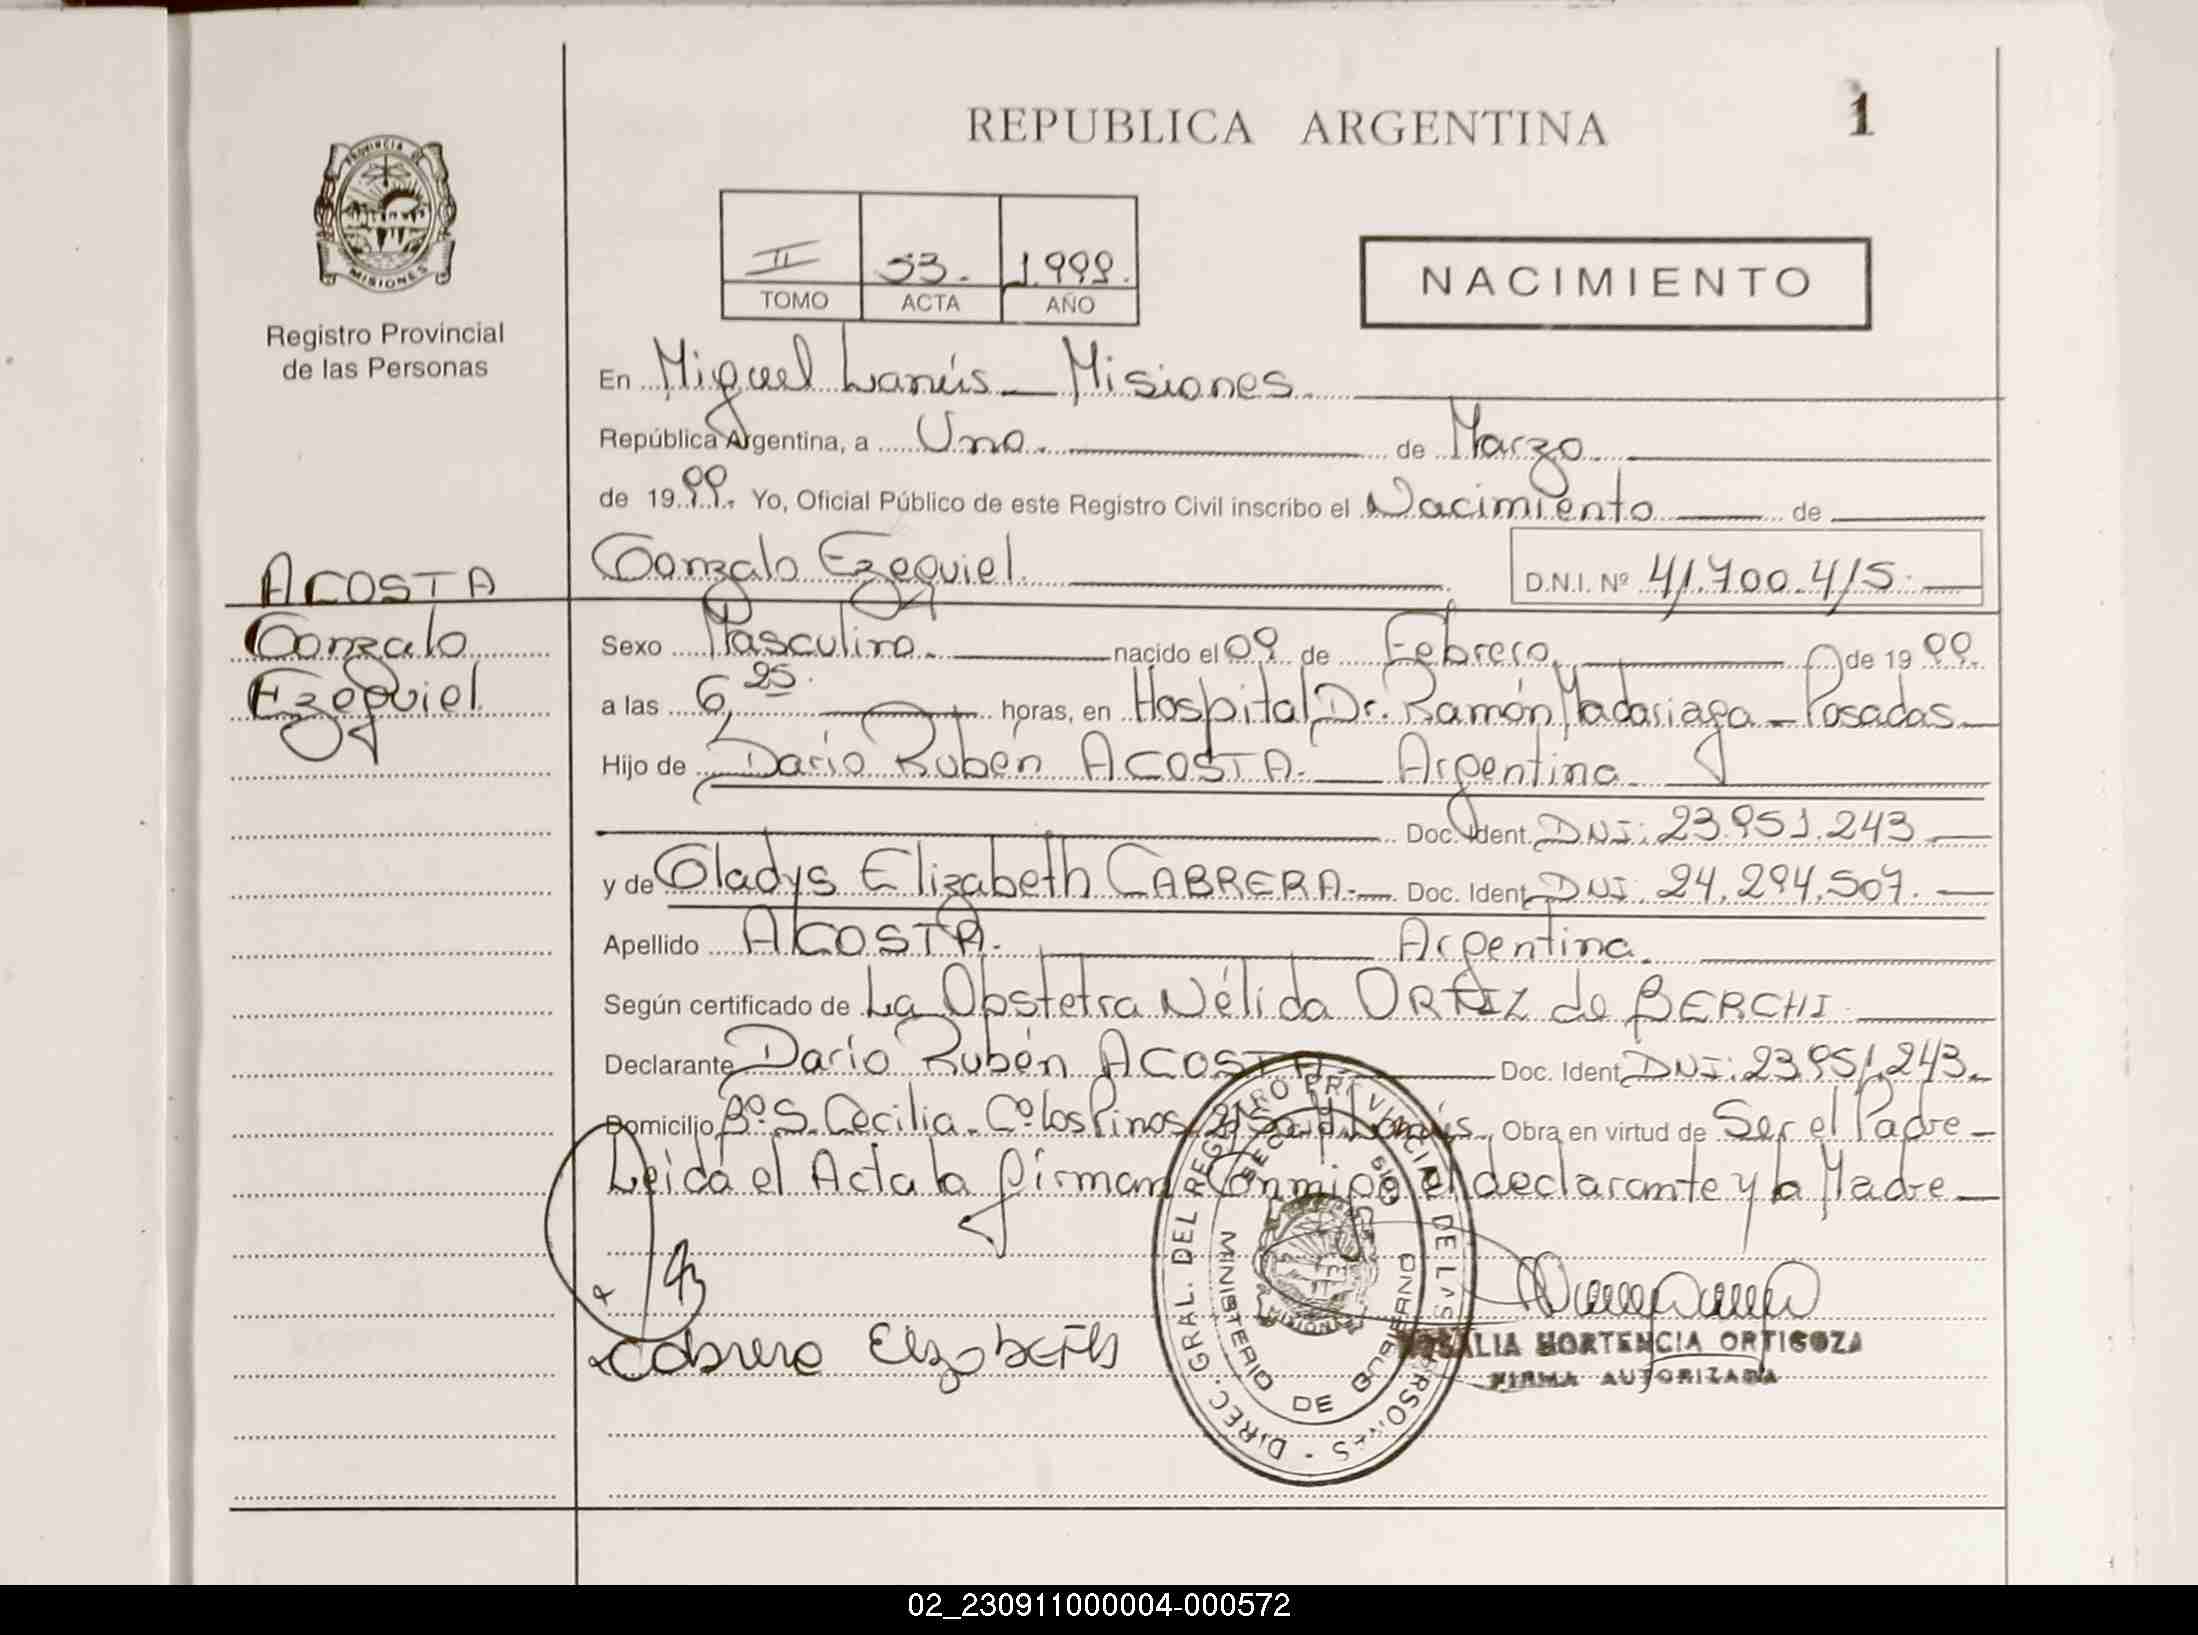 REPUBLICA ARGENTINA
1
PROVINCIA DE
MISIONES
Registro Provincial
de las Personas
II 53. 1.999.
TOMO ACTA AÑO
NACIMIENTO
En Miguel Lanús - Misiones
República Argentina, a Uno. de Marzo
de 1999. Yo, Oficial Público de este Registro Civil inscribo el Nacimiento de
Gonzalo Ezequiel. D.N.I. Nº 41.700.415.
ACOSTA
Gonzalo
Ezequiel
Sexo Masculino. nacido el 09 de Febrero de 1999.
a las 6,25. horas, en Hospital Dr. Ramón Madariaga - Posadas
Hijo de Darío Rubén ACOSTA. Argentina
Doc. Ident. DNI: 23.951.243
y de Gladys Elizabeth CABRERA. Doc. Ident. DNI: 24.294.507.
Apellido ACOSTA. Argentina.
Según certificado de La Obstetra Nélida ORTIZ de BERCHI.
Declarante Darío Rubén ACOSTA Doc. Ident. DNI: 23.951.243.
Domicilio Bº. S. Cecilia - Cº Los Pinos Lanús. Obra en virtud de Ser el Padre
Leida el Acta la firman Conmigo el declarante y la Madre
Cabrera Elizabeth
DIREC. GRAL. DEL REGISTRO PROVINCIAL DE LAS PERSONAS
MINISTERIO DE GOBIERNO
MISIONES
ROSALIA HORTENCIA ORTIGOZA
FIRMA AUTORIZADA
02_230911000004-000572